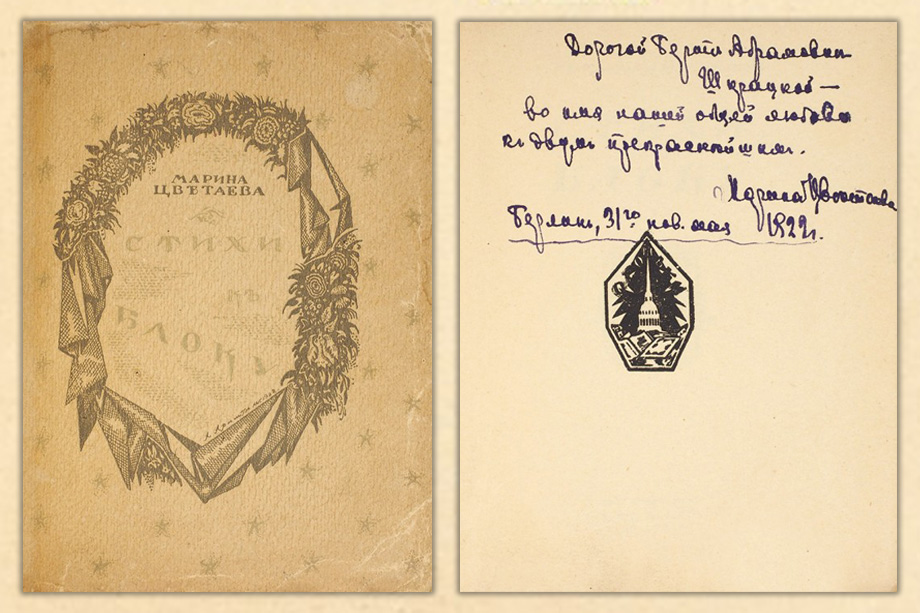 МАРИНА
ЦВЕТАЕВА
СТИХИ
КЪ
БЛОКУ
Дорогой Берте Абрамовне
Шкрацкой —
во имя нашей общей любови
къ двумъ прекраснѣйшимъ.
Марина Цвѣтаева
Берлинъ, 31го нов. мая 1922г.